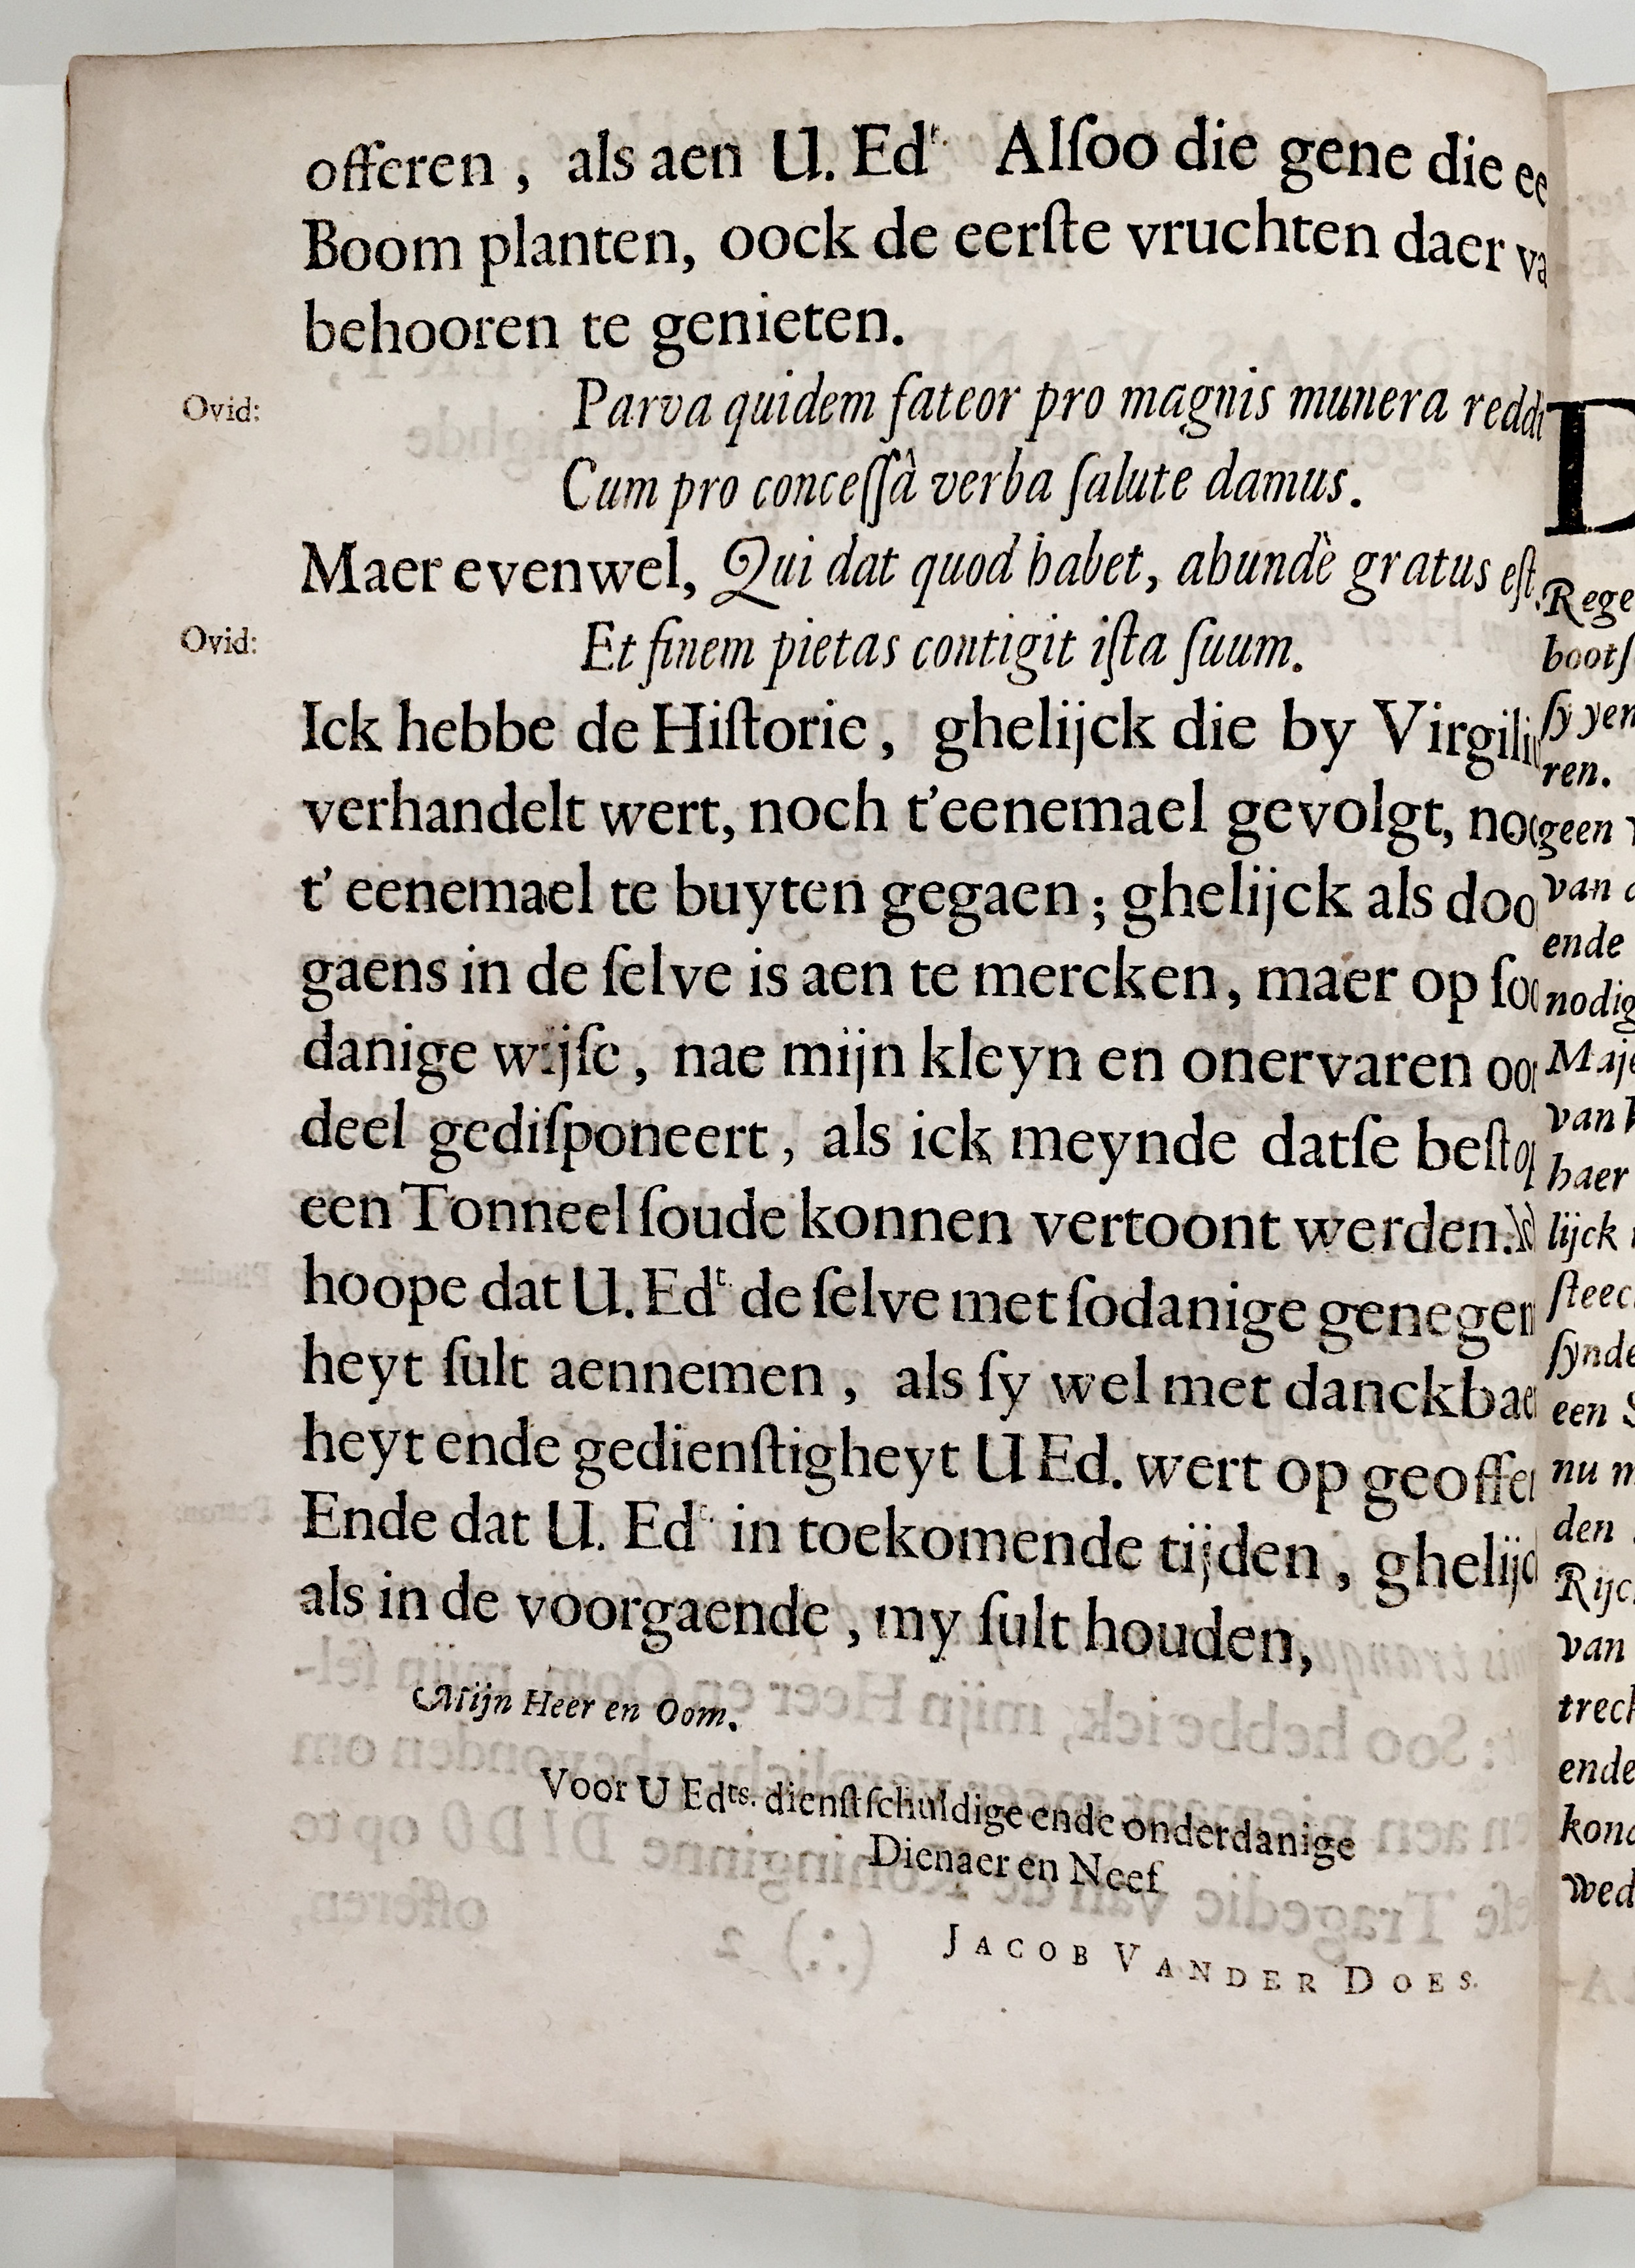 offeren, als aen U. Edt. Alſoo die gene die ee
Boom planten, oock de eerſte vruchten daer va
behooren te genieten.
Ovid: Parva quidem fateor pro magnis munera reddi
Cum pro conceſſâ verba ſalute damus.
Maer evenwel, Qui dat quod habet, abundè gratus eſt.
Ovid: Et finem pietas contigit iſta ſuum.
Ick hebbe de Hiſtorie, ghelijck die by Virgiliu
verhandelt wert, noch t'eenemael gevolgt, noc
t' eenemael te buyten gegaen; ghelijck als doo
gaens in de ſelve is aen te mercken, maer op ſoo
danige wijſe, nae mijn kleyn en onervaren oor
deel gediſponeert, als ick meynde datſe beſt op
een Tonneel ſoude konnen vertoont werden.
hoope dat U. Edt. de ſelve met ſodanige genegen
heyt ſult aennemen, als ſy wel met danckbaer
heyt ende gedienſtigheyt U Ed. wert op geoffer
Ende dat U. Edt. in toekomende tijden, ghelijc
als in de voorgaende, my ſult houden,
Mijn Heer en Oom.
Voor U Edts. dienſtſchuldige ende onderdanige
Dienaer en Neef
JACOB VANDER DOES.
D
Rege
bootſ
ſy yen
ren.
geen
van
ende
nodig
Maje
van
haer
lijck
ſteec
ſynde
een
nu
den
Rijc
van
trech
ende
kond
wed